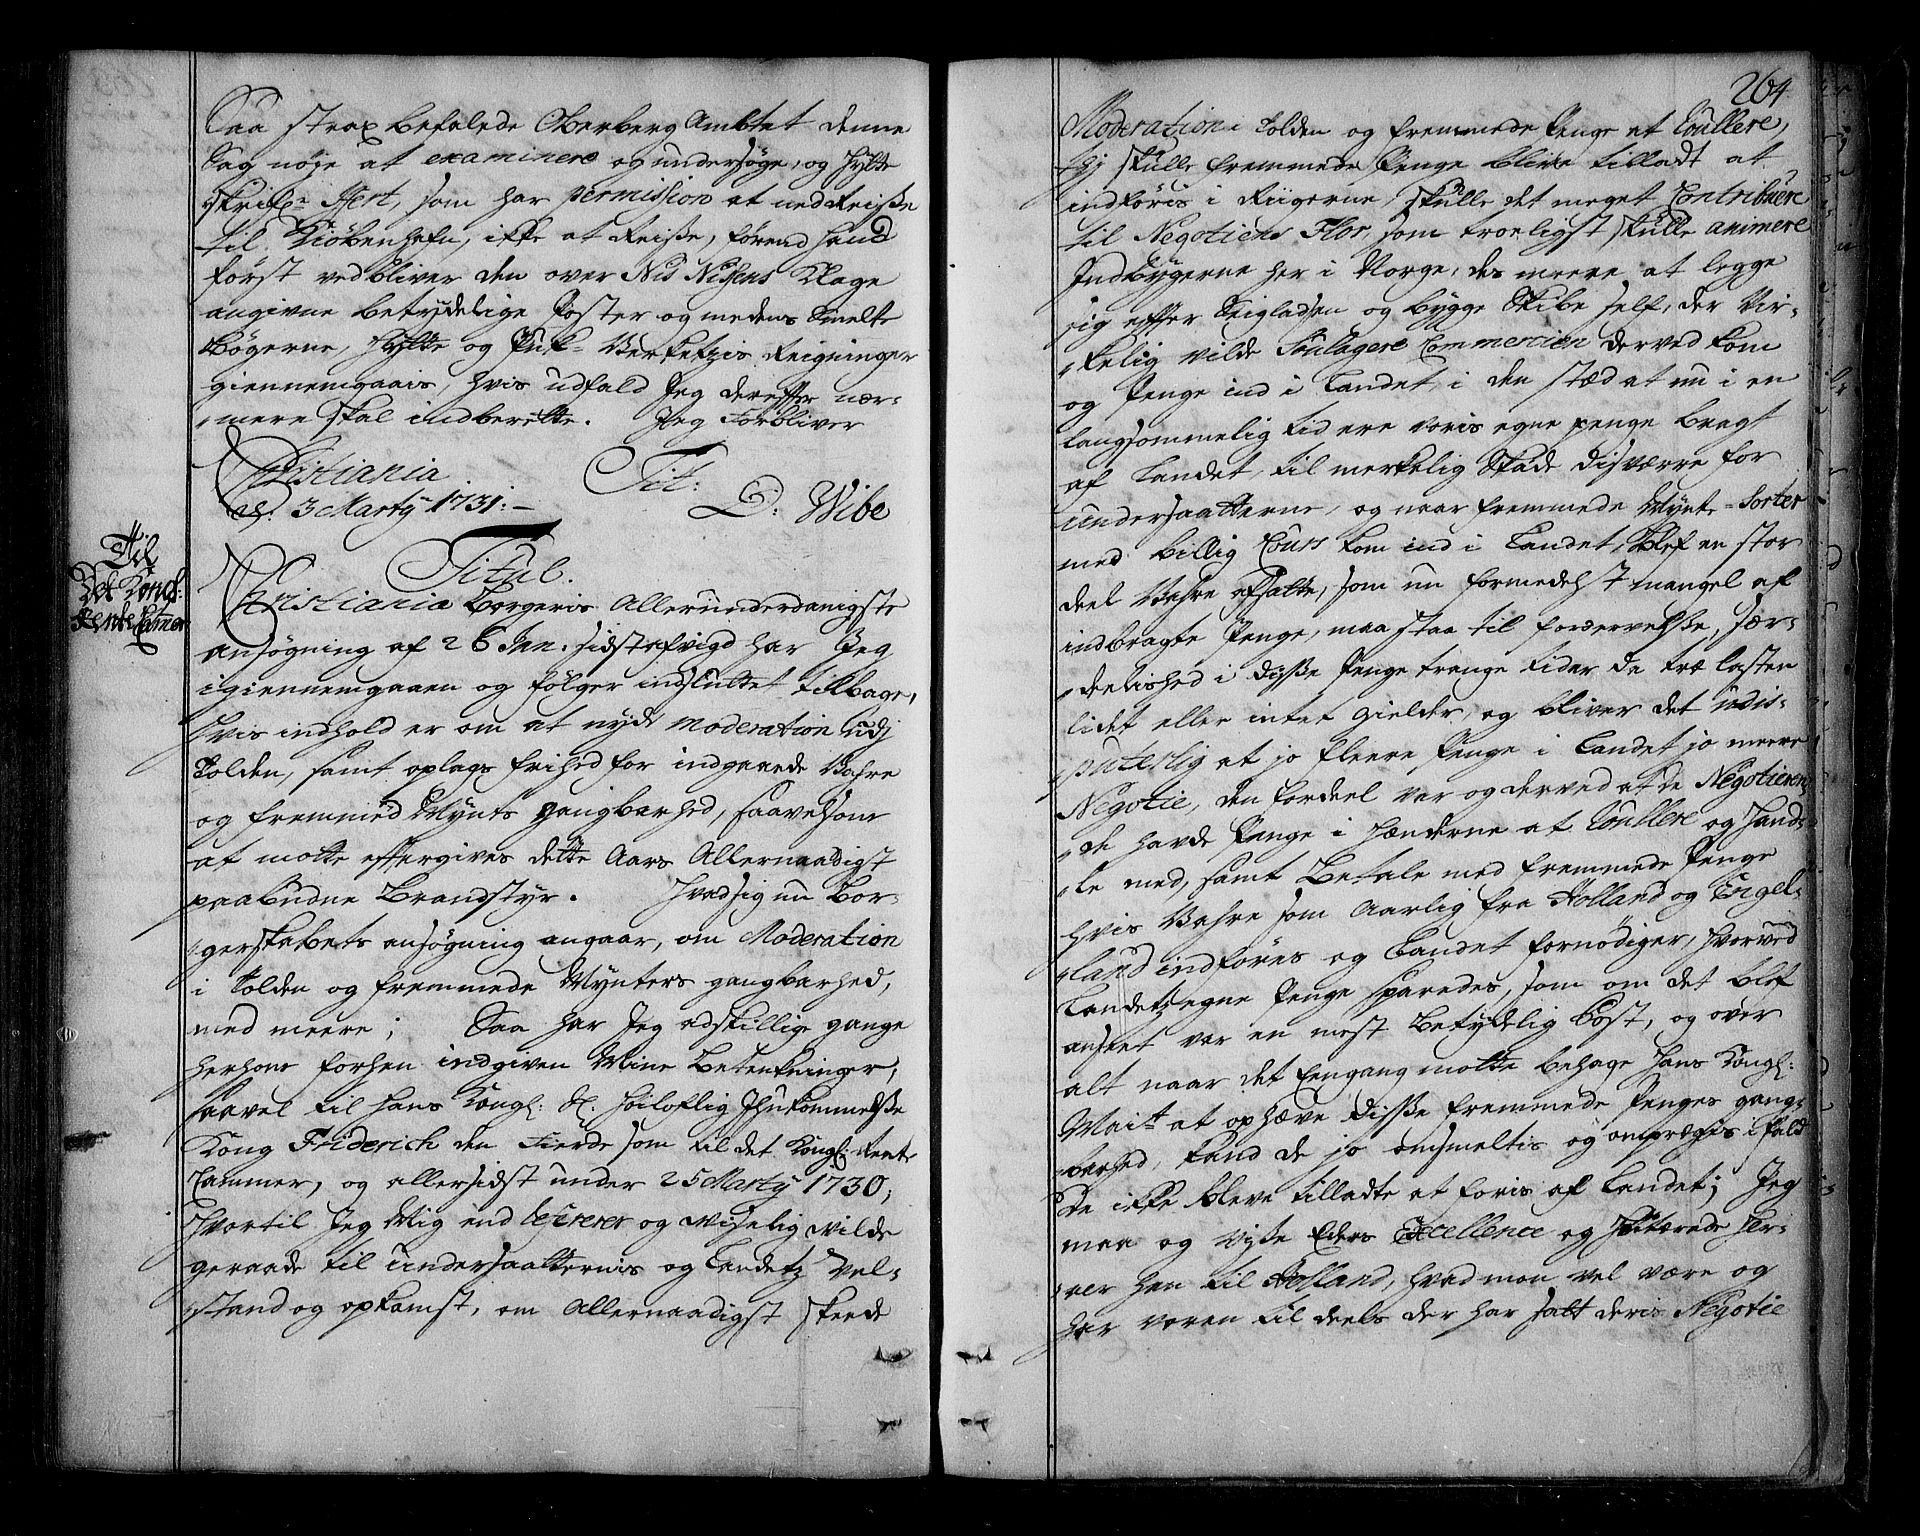 Saa strax befalede Oberberg Ambtet denne
Sag nøje at examinere og undersøge, og Hytte
skrifr: Hert, som har permission at nedReiße
til Kiöbenhafn, ikke at Reiße, förend hand
först vedbliver den over Nis Nißens Klage
angivne betydelige Poster og medens Smelte
bögerne, Hytte og Puk-Verketzis Reigninger
giennemgaais, hvis udfald Jeg derefter nær-
mere skal indberette. Jeg Forbliver
Christiania Tit:
d. 3 Marty 1731:- D: Wibe
Til
Det Kongl:
RenteCamer
Titul.
Christiania Borgeris Allerunderdanigste
ansögning af 26 Jan: sidstafvigd har Jeg
igiennemgaaen og fölger indsluttet tilbage,
hvis indhold er om at nyde moderation udj
Tolden, samt oplags frihed for indgaaede Vahre
og fremmed Mynts gangbarhed, saavelsom
at motte eftergives dette Aars Allernaadigst
paabudne Brandstyr. Hvad sig nu Bor-
gerskabets ansögning angaar, om Moderation
i Tolden og fremmede Mynters gangbarhed,
med meere; Saa har Jeg adskillige gange
herhos forhen indgiven Mine Betenkninger,
saavel til Hans Kongl: H: Höiloflig Ihukommelße
Kong Friderich den Fierde som til det Kongl: Rente
Cammer, og allersidst under 25 Marty 1730;
Hvortil Jeg Mig end referer og viselig vilde
geraade til Undersaatternis og Landetz Vel-
stand og opkomst, om Allernaadigst skeede
264
Moderation i Tolden og fremmede Penge at Roullere,
thj skulle fremmede Penge blive tilladt at
indföris i Riigerne, skulle det meget Contribuere
til Negotiens Flor, som troeligst skulle animere
Indbyggerne her i Norge, des meere at legge
sig efter Seigladsen og bygge Skibe self, der Vir-
kelig vilde Soulagere Commercien derved kom
og Penge ind i Landet, i den stæd at nu i en
langsommelig tid ere voris egne penge bragt
af Landet, til merkelig Skade disværre for
Undersaatterne, og naar fremmede Mynte-Sorter
med billig Cours kom ind i Landet, blef en stor
deel Vahre afsatte, som nu formedelst mangel af
indbragte Penge, maa staa til fordervelße, sær-
deelished i diße Penge trange tider da træ lasten
lidet eller intet gielder, og bliver det indis-
puterlig at jo fleere Penge i Landet jo meere
Negotie, den fordeel var og derved at de Negotieren-
de havde Penge i Hænderne at Roullere og Hand-
le med, samt Betale med fremmede Penge
hvis Vahre som Aarlig fra Holland og Engel-
land indföres og Landet fornödiger, hvorved
Landetz egne Penge sparedes, som om det blef
anseet var en most betydelig Post, og over
alt naar det Eengang motte behage Hans Kongl:
Mait at ophæve diße fremmede Penges gang-
barhed, kand de jo omsmeltis og omprægis i fald
De ikke bleve tilladte at föris af Landet; Jeg
maa og viße Eders Excellence og Höitærede Her-
rer hen til Holland, hvad mon vel være og
har været til deels der har satt deris Negotie